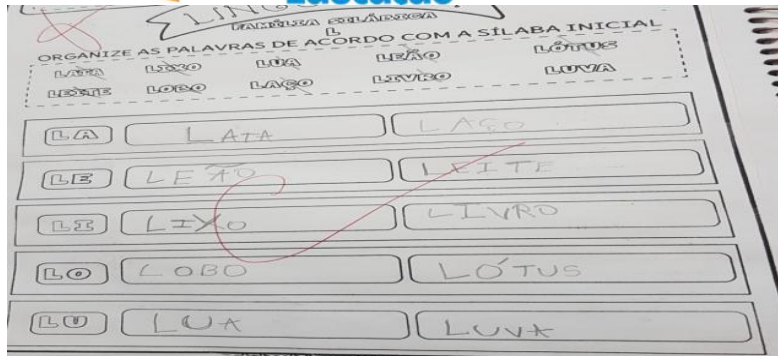 FAMÍLIA SILÁBICA
L
ORGANIZE AS PALAVRAS DE ACORDO COM A SÍLABA INICIAL
LATA LIXO LUA LEÃO LÓTUS
LEITE LOBO LAÇO LIVRO LUVA
LA LATA LAÇO
LE LEÃO LEITE
LI LIXO LIVRO
LO LOBO LÓTUS
LU LUA LUVA